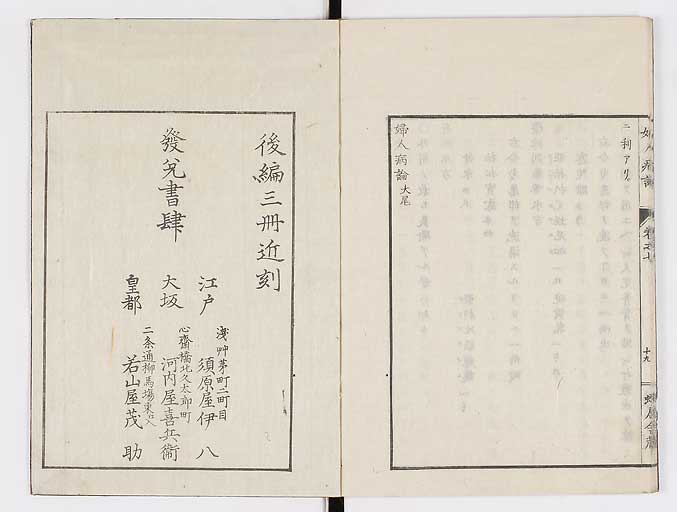 ニ利アリ
婦人病論大尾
婦人病論
十九
後編三冊近刻
發兌書肆
江戸
淺艸茅町二町目
須原屋伊八
大坂
心齋橋北久太郎町
河内屋喜兵衞
皇都
二条通柳馬場東ヘ入
若山屋茂助